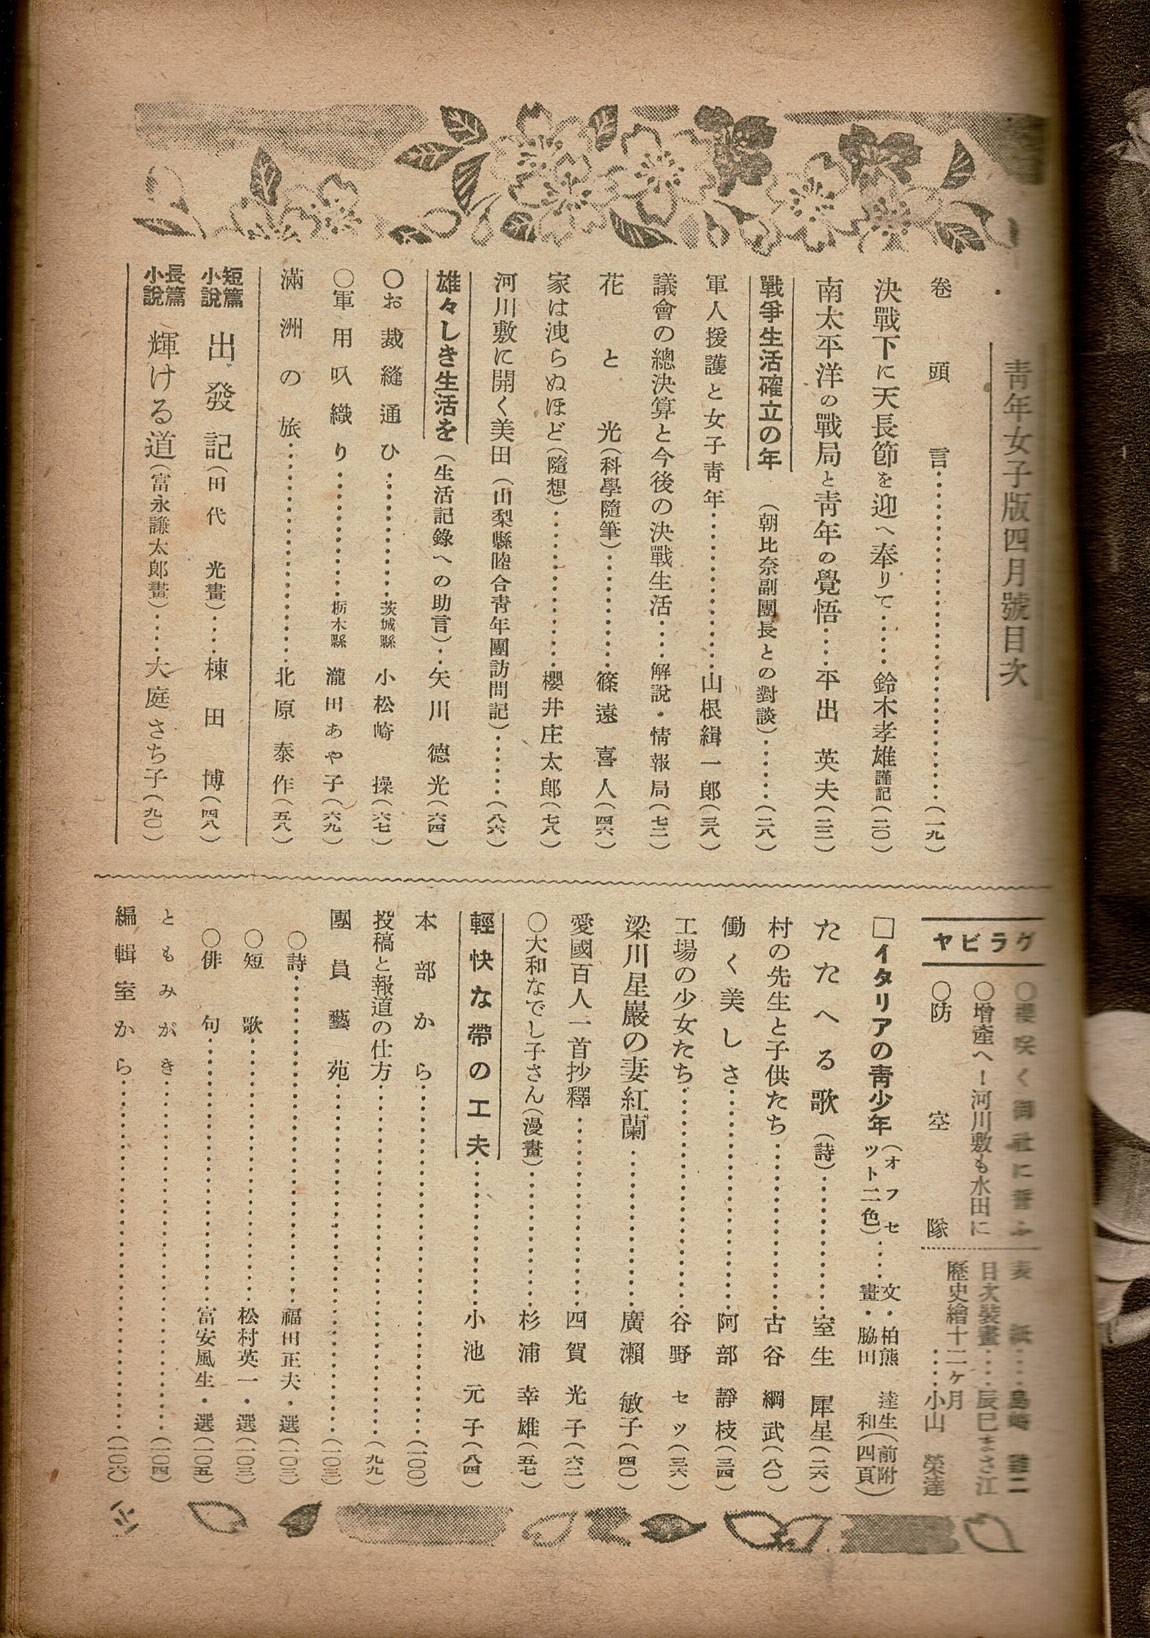 靑年女子版四月號目次
卷頭言……(一九)
決戰下に天長節を迎へ奉りて……鈴木孝雄謹記(二〇)
南太平洋の戰局と靑年の覺悟……平出英夫(二二)
戰爭生活確立の年(朝比奈副團長との對談)……(二八)
軍人援護と女子靑年……山根緝一郎(三八)
議會の總決算と今後の決戰生活……解說・情報局(七二)
花と光(科學隨筆)……篠遠喜人(四六)
家は洩らぬほど(隨想)……櫻井庄太郎(七八)
河川敷に開く美田(山梨縣睦合靑年團訪問記)……(八六)
雄々しき生活を(生活記錄への助言)……矢川德光(六四)
〇お裁縫通ひ……茨城縣 小松崎操(六七)
〇軍用叺織り……栃木縣 瀧田あや子(六九)
滿洲の旅……北原泰作(五八)
短篇小說 出發記(田代光畫)……棟田博(四八)
長篇小說 輝ける道(富永謙太郎畫)……大庭さち子(九〇)
グラビヤ
〇櫻咲く御社に誓ふ
〇增產へ！河川敷も水田に
〇防空隊
表紙……島崎雞二
目次裝畫……辰巳まさ江
歷史繪十二ヶ月……小山榮達
□イタリアの靑少年(オフセット二色)……文・柏熊達生 畫・脇田和(前附四頁)
たたへる歌(詩)……室生犀星(二六)
村の先生と子供たち……古谷綱武(八〇)
働く美しさ……阿部靜枝(三四)
工場の少女たち……谷野セツ(三六)
梁川星巖の妻紅蘭……廣瀨敏子(四〇)
愛國百人一首抄釋……四賀光子(六二)
〇大和なでし子さん(漫畫)……杉浦幸雄(五七)
輕快な帶の工夫……小池元子(八四)
本部から……(一〇〇)
投稿と報道の仕方……(九九)
團員藝苑……(一〇三)
〇詩……福田正夫・選(一〇三)
〇短歌……松村英一・選(一〇三)
〇俳句……富安風生・選(一〇五)
ともみがき……(一〇四)
編輯室から……(一〇六)